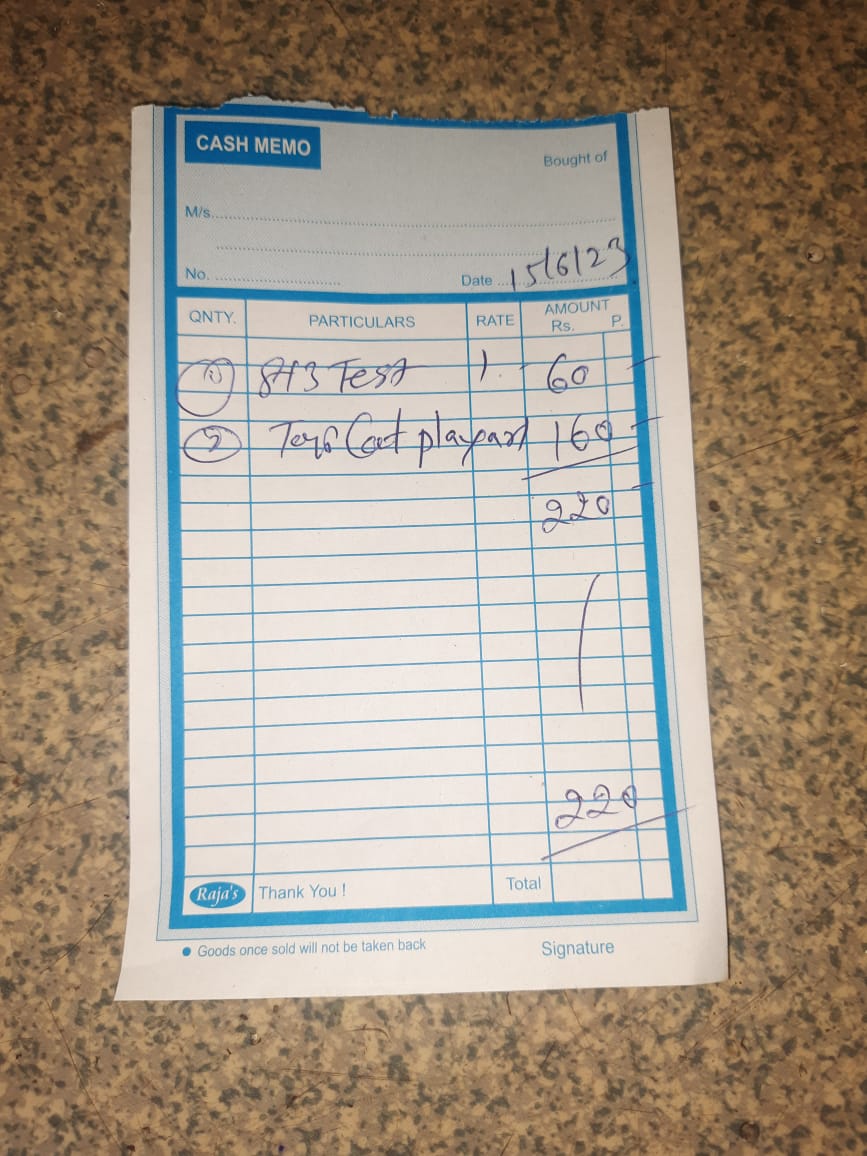 CASH MEMO
Bought of
M/s
No. Date 15/6/23
QNTY. PARTICULARS RATE AMOUNT
Rs. P.
① Test 1. 60 —
② 160 —
220 —
220
Raja's Thank You ! Total
● Goods once sold will not be taken back Signature